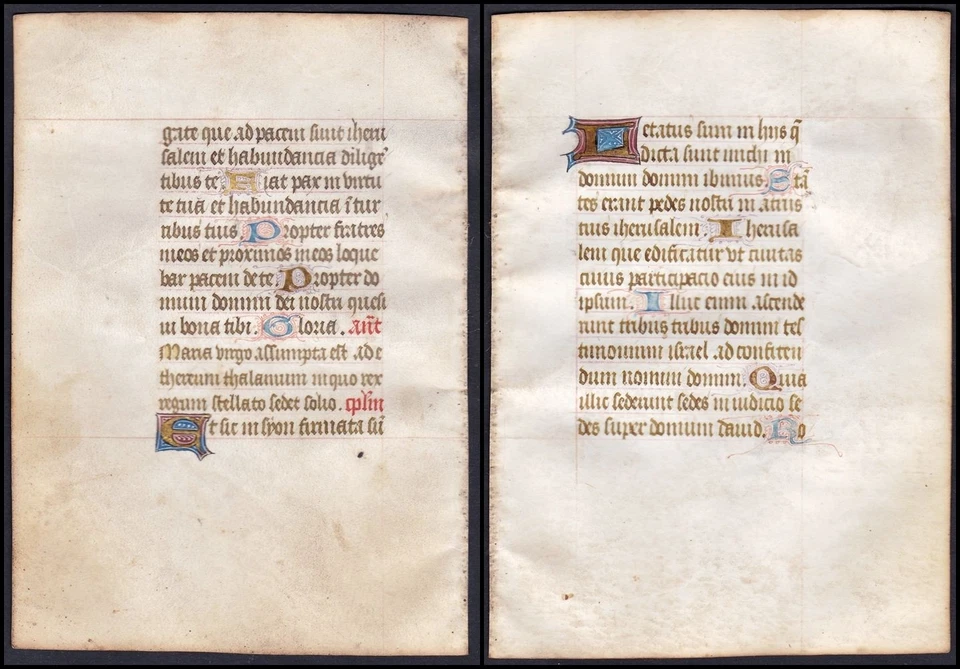 gate que ad pacem sunt iheru
salem et habundancia dilige᷑
tibus te Fiat pax in virtu
te tuā et habundancia ī tur
ribus tuis. Propter fratres
meos et proximos meos loque
bar pacem de te Propter do
mum domini dei nostri quesi
ui bona tibi. Gloria. añt
Maria virgo assumpta est ad e
thereum thalamum in quo rex
regum stellato sedet solio. cplm
Et sic in syon firmata sū
Letatus sum in hiis q̄
dicta sunt michi in
domum domini ibimus. Stā
tes erant pedes nostri in atriis
tuis iherusalem. Iherusa
lem que edificatur vt ciuitas
cuius participacio eius in id
ipsum. Illuc enim ascende
runt tribus tribus domini tes
timonium israel ad confiten
dum nomini domini. Quia
illic sederunt sedes in iudicio se
des super domum dauid. Ro